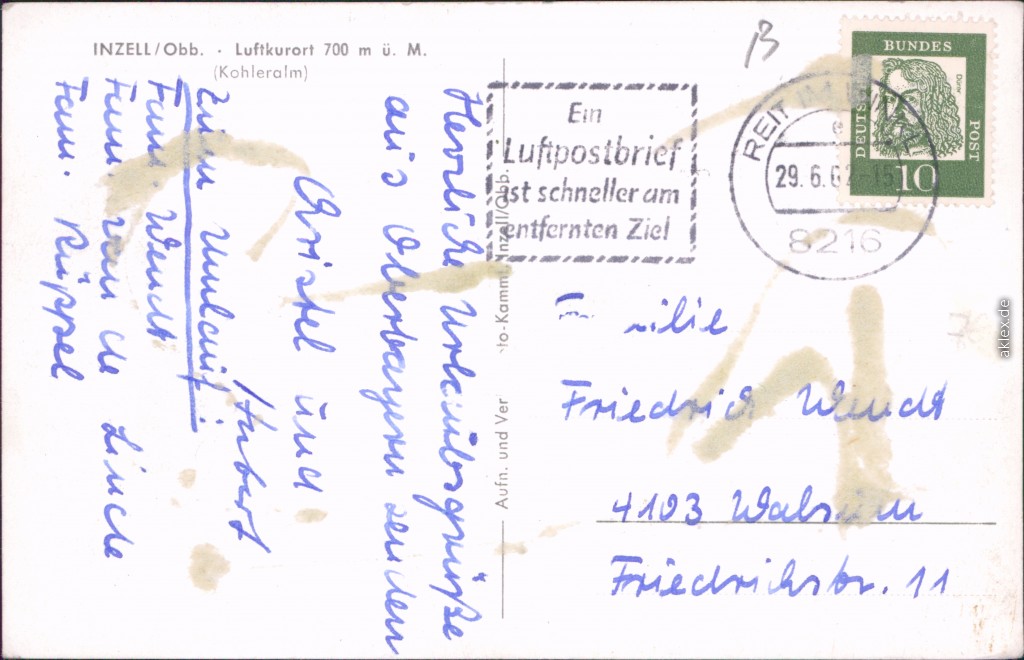 INZELL/Obb. · Luftkurort 700 m ü. M.
(Kohleralm)
Herzliche Urlaubsgrüße
aus Oberbayern senden
Christel und
Hubert
Zum Umlauf:
Fam. Wendt
Fam. van de Linde
Fam. Rüppel
Aufn. und Ver
to-Kamm
Inzell/Obb.
Ein
Luftpostbrief
ist schneller am
entfernten Ziel
REIT IM WINKL
e
29.6.62-15
8216
BUNDES
DEUTSCHE
POST
Dürer
10
ilie
Friedrich Wendt
4103 Walsum
Friedrichstr. 11
aklex.de